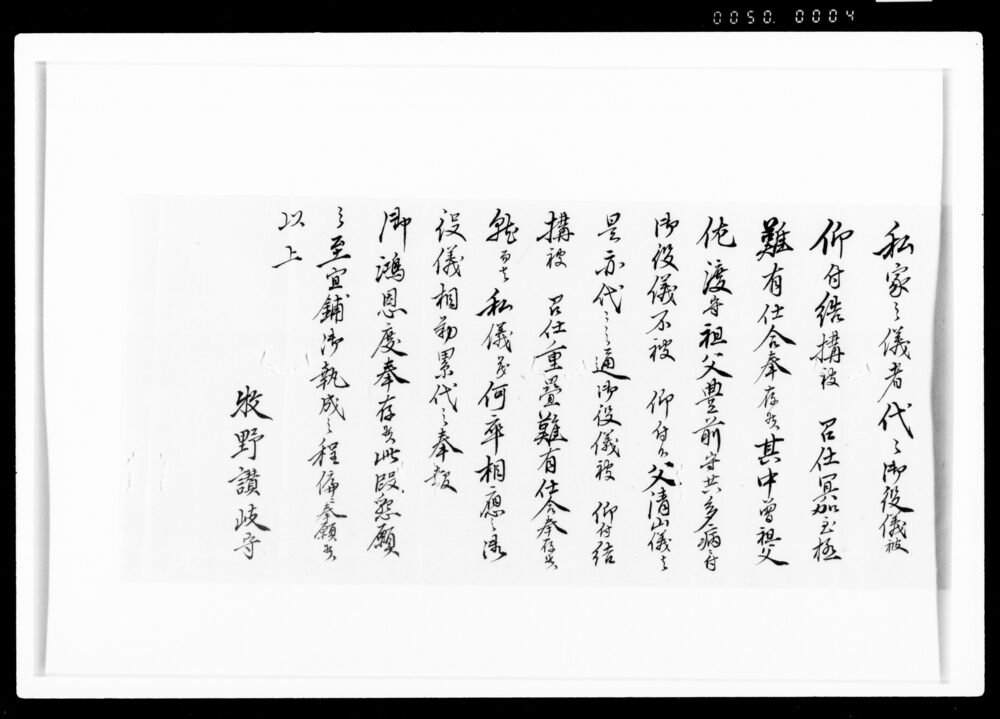 0050. 0004
私家之儀者代々御役儀被
仰付結構被 召仕冥加至極
難有仕合奉存候其中曽祖父
佐渡守祖父豊前守共多病ニ付
御役儀不被 仰付候父清山儀も
是亦代々之通御役儀被 仰付結
構被 召仕重畳難有仕合奉存候
就而者私儀茂何卒相應之御
役儀相勤累代之奉報
御鴻恩度奉存候此段懇願
之至宜鋪御執成之程偏奉願候
以上
牧野讃岐守